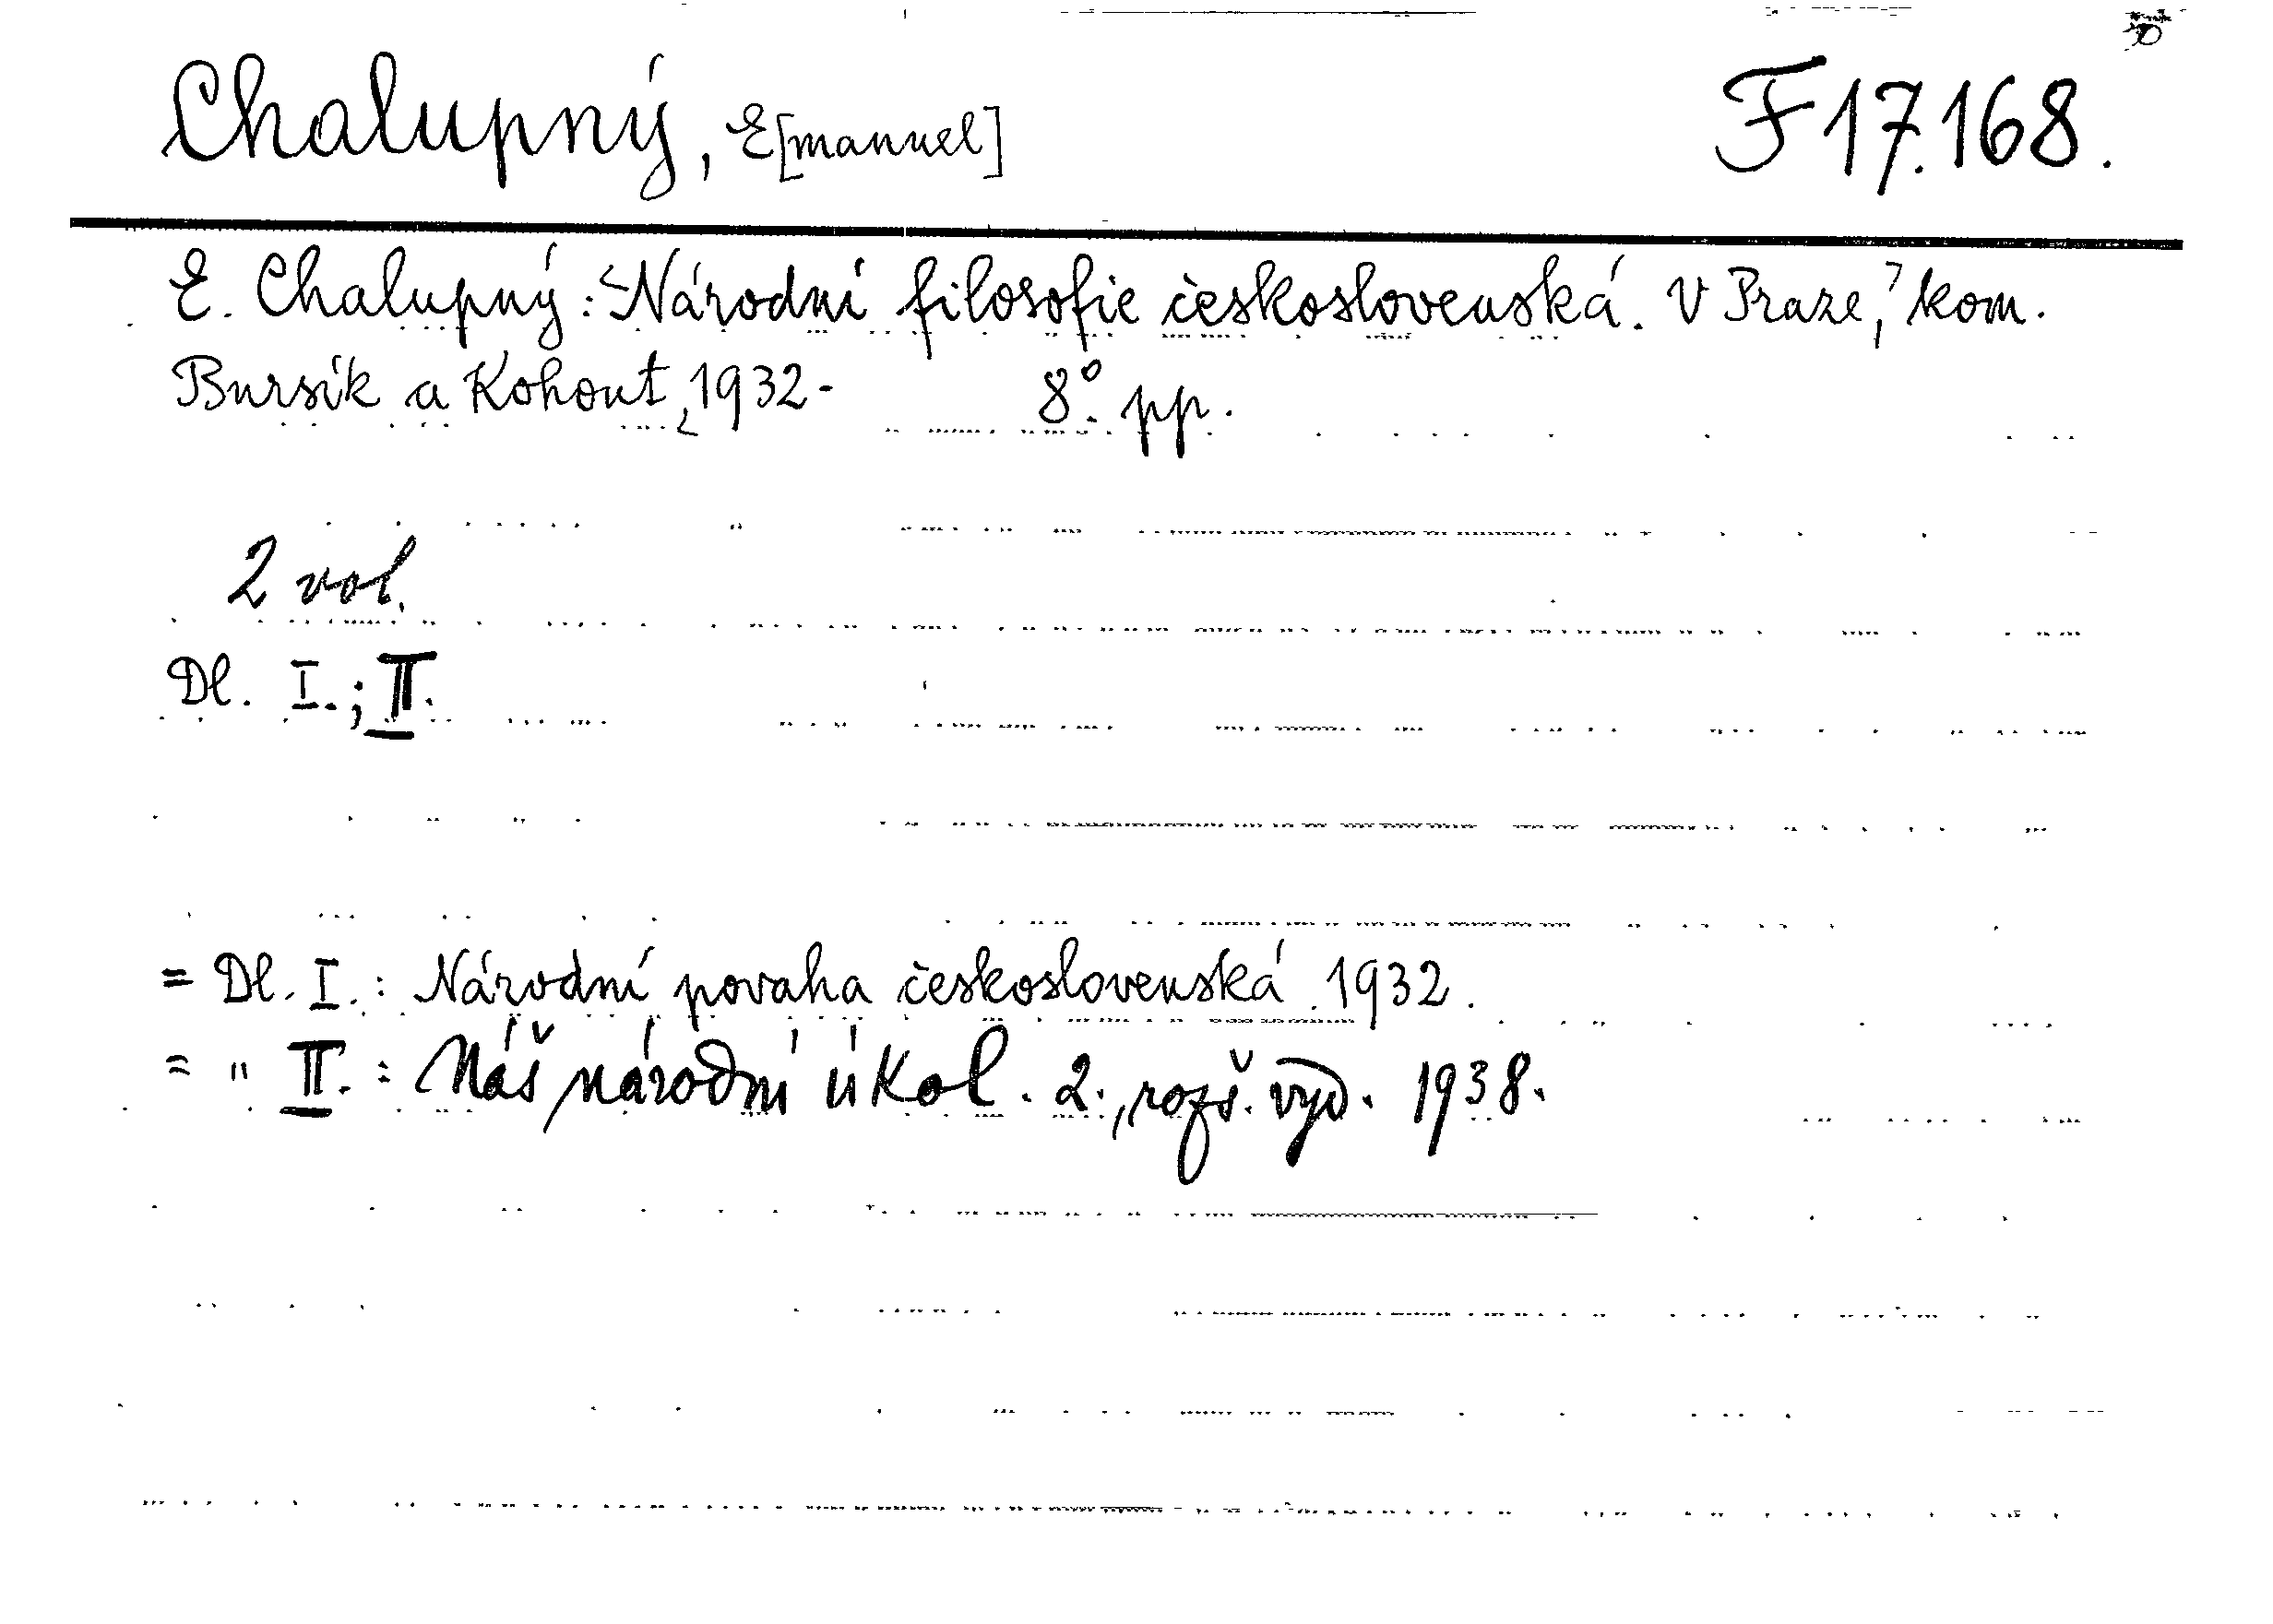 Chalupný, E[manuel] F 17.168.
E. Chalupný: Národní filosofie československá. V Praze, kom.
Bursík a Kohout, 1932- 8°. pp.
2 vol.
Dl. I.; II.
= Dl. I.: Národní povaha československá. 1932.
= " II.: Náš národní úkol. 2., rozš. vyd. 1938.